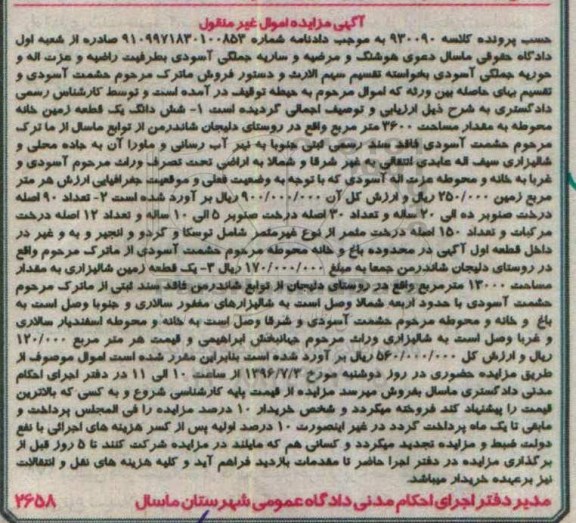 آگهی مزایده اموال غیر منقول
حسب پرونده کلاسه ۹۳۰۰۹۰ به موجب دادنامه شماره ۹۱۰۹۹۷۱۸۳۰۱۰۰۸۵۳ صادره از شعبه اول
دادگاه حقوقی ماسال دعوی هوشنگ و مرضیه و ساریه جملگی آسودی بطرفیت راضیه و عزت اله و
حوریه جملگی آسودی بخواسته تقسیم سهم الارث و دستور فروش ماترک مرحوم حشمت آسودی و
تقسیم بهای حاصله بین ورثه که اموال مرحوم به حیطه توقیف در آمده است و توسط کارشناس رسمی
دادگستری به شرح ذیل ارزیابی و توصیف اجمالی گردیده است ۱- شش دانگ یک قطعه زمین خانه
محوطه به مقدار مساحت ۳۶۰۰ متر مربع واقع در روستای دلیجان شاندرمن از توابع ماسال از ما ترک
مرحوم حشمت آسودی فاقد سند رسمی ثبتی جنوبا به نهر آب رسانی و ماورا آن به جاده محلی و
شالیزاری سیف اله عابدی انتقالی به غیر شرقا و شمالا به اراضی تحت تصرف وراث مرحوم آسودی و
غربا به خانه و محوطه عزت اله آسودی که با توجه به وضعیت فعلی و موقعیت جغرافیایی ارزش هر متر
مربع زمین ۲۵۰/۰۰۰ ریال و ارزش کل آن ۹۰۰/۰۰۰/۰۰۰ ریال بر آورد شده است ۲- تعداد ۹۰ اصله
درخت صنوبر ده الی ۲۰ ساله و تعداد ۳۰ اصله درخت صنوبر ۵ الی ۱۰ ساله و تعداد ۱۲ اصله درخت
مرکبات و تعداد ۱۵۰ اصله درخت مثمر از نوع غیرمثمر شامل توسکا و گردو و انجیر و به و غیر در
داخل قطعه اول آگهی در محدوده باغ و خانه محوطه مرحوم حشمت آسودی از ماترک مرحوم واقع
در روستای دلیجان شاندرمن جمعا به مبلغ ۱۷۰/۰۰۰/۰۰۰ ریال ۳- یک قطعه زمین شالیزاری به مقدار
مساحت ۱۳۰۰۰ مترمربع واقع در روستای دلیجان از توابع شاندرمن فاقد سند ثبتی از ماترک مرحوم
حشمت آسودی با حدود اربعه شمالا وصل است به شالیزارهای غفور سالاری و جنوبا وصل است به
باغ و خانه و محوطه مرحوم حشمت آسودی و شرقا وصل است به خانه و محوطه اسفندیار سالاری
و غربا وصل است به شالیزاری وراث مرحوم جهانبخش ابراهیمی و قیمت هر متر مربع ۱۲۰/۰۰۰
ریال و ارزش کل ۵۶۰/۰۰۰/۰۰۰ ریال بر آورد شده است بنابراین مقرر شده است اموال موصوف از
طریق مزایده حضوری در روز دوشنبه مورخ ۱۳۹۶/۷/۳ از ساعت ۱۰ الی ۱۱ در دفتر اجرای احکام
مدنی دادگستری ماسال بفروش میرسد مزایده از قیمت پایه کارشناسی شروع و به کسی که بالاترین
قیمت را پیشنهاد کند فروخته میگردد و شخص خریدار ۱۰ درصد مزایده را فی المجلس پرداخت و
مابقی تا یک ماه پرداخت گردد در غیر اینصورت ۱۰ درصد اولیه پس از کسر هزینه های اجرائی با نفع
دولت ضبط و مزایده تجدید میگردد و کسانی هم که مایلند در مزایده شرکت کنند تا ۵ روز قبل از
برگذاری مزایده در دفتر اجرا حاضر تا مقدمات بازدید فراهم آید و کلیه هزینه های نقل و انتقالات
نیز برعهده خریدار میباشد.
مدیر دفتر اجرای احکام مدنی دادگاه عمومی شهرستان ماسال ۳۶۵۸